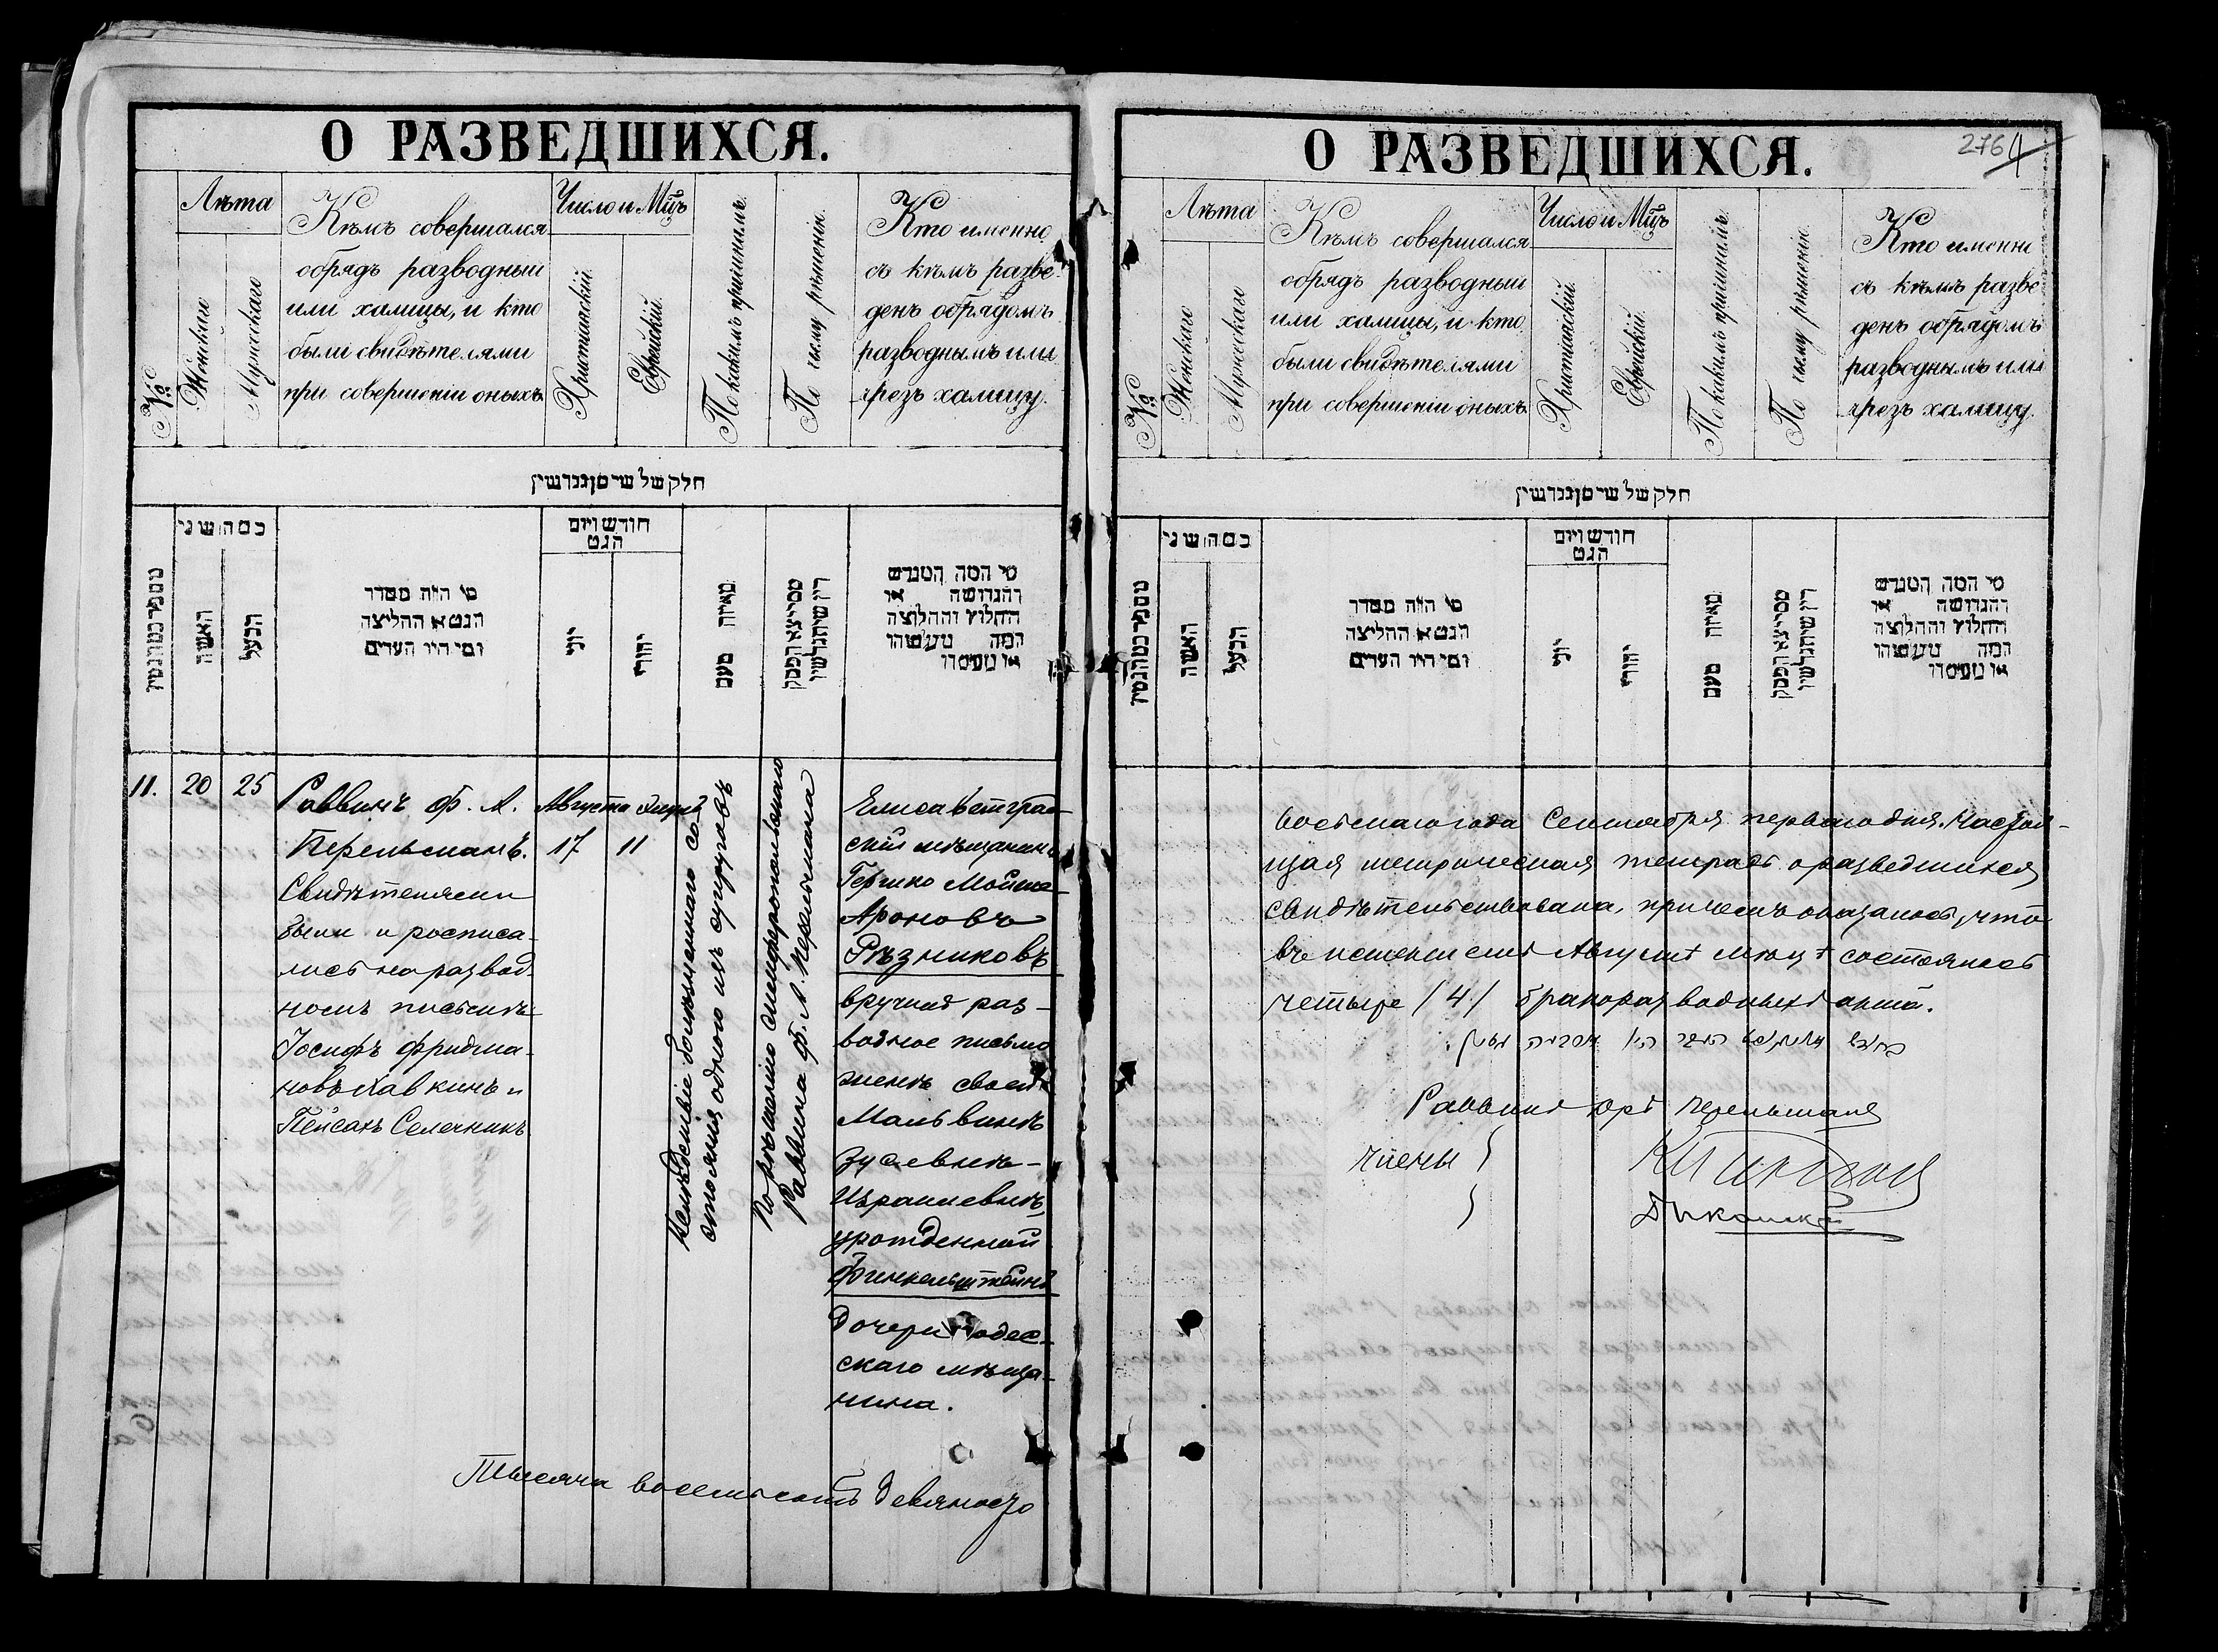 О РАЗВЕДШИХСЯ.
№
Лѣта
Женскаго
Мужескаго
Кѣмъ совершался
обрядъ разводный
или халицы, и кто
были свидѣтелями
при совершеніи оныхъ.
Число и Мцъ
Христіанскій.
Еврейскій.
По какимъ причинамъ.
По чьему рѣшенію.
Кто именно
съ кѣмъ разве-
денъ обрядомъ
разводнымъ или
чрезъ халицу.
חלק של שיסן גרושין
כמה שני
האשה
הבעל
מי היה מסדר
הגט או החליצה
ומי היו העדים
חודש ויום
הגט
יוני
יהודי
מאיזה טעם
ממי יצא הפסק
דין שיתגרשו
מי המה המגרש
והגרושה או
החלוץ והחלוצה
המה
11.
20
25
Раввинъ Ф. Л.
Перельманъ.
Свидѣтелями
были и росписа-
лись на развод-
номъ письмѣ
Іосифъ Фридма-
новъ Хавкинъ и
Пейсахъ Селечникъ
Августа
17
11
Вслѣдствіе болѣзненнаго со-
стоянія одного изъ супруговъ
По рѣшенію симферопольскаго
Раввина Ф. Л. Перельмана
Елисаветград-
скій мѣщанинъ
Гершко Мойше-
Ароновъ
Рѣзниковъ
вручилъ раз-
водное письмо
женѣ своей
Мальвинѣ
Зуселевнѣ-
Израилевнѣ,
урожденной
Финкельштейнъ
дочери одес-
скаго мѣща-
нина.
Тысяча восемьсотъ девяносто
О РАЗВЕДШИХСЯ.
276
№
Лѣта
Женскаго
Мужескаго
Кѣмъ совершался
обрядъ разводный
или халицы, и кто
были свидѣтелями
при совершеніи оныхъ.
Число и Мцъ
Христіанскій.
Еврейскій.
По какимъ причинамъ.
По чьему рѣшенію.
Кто именно
съ кѣмъ разве-
денъ обрядомъ
разводнымъ или
чрезъ халицу.
חלק של שיסן גרושין
כמה שני
האשה
הבעל
מי היה מסדר
הגט או החליצה
ומי היו העדים
חודש ויום
הגט
יוני
יהודי
מאיזה טעם
ממי יצא הפסק
דין שיתגרשו
מי המה המגרש
והגרושה או
החלוץ והחלוצה
המה
восьмаго года Сентября перваго дня. Настоя-
щая метрическая тетрадь о разведшихся
свидѣтельствована, причемъ оказалось, что
въ истекшемъ Августѣ мѣсяцѣ состоялось
четыре /4/ бракоразводныхъ акта.
Раввинъ Перельманъ
Члены